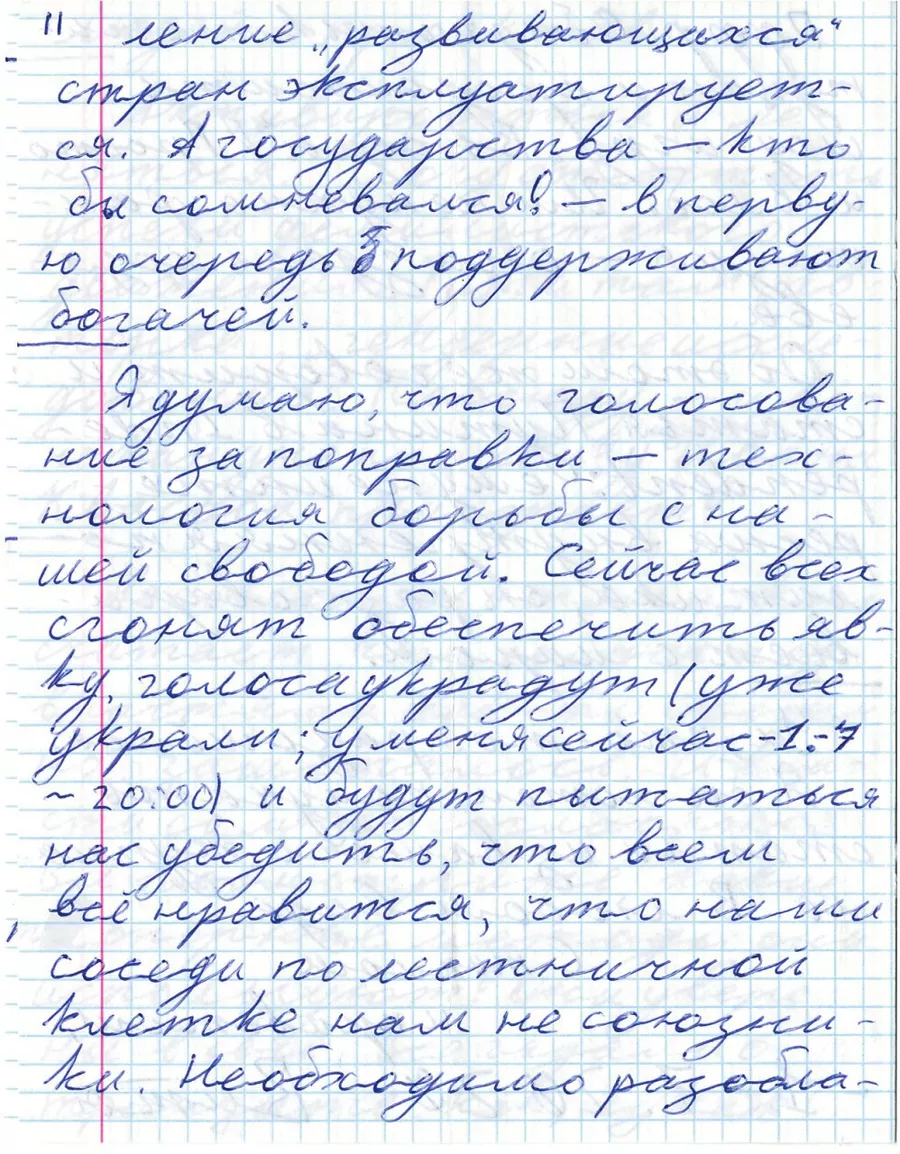 11 ление „развивающихся“
стран эксплуатирует-
ся. А государства – кто
бы сомневался! – в перву-
ю очередь поддерживают
богачей.
Я думаю, что голосова-
ние за поправки – тех-
нология борьбы с на-
шей свободой. Сейчас всех
сгонят обеспечить яв-
ку, голоса украдут (уже
украли; у меня сейчас – 1.-7
~ 20:00) и будут пытаться
нас убедить, что всем
всё нравится, что наши
соседи по лестничной
клетке нам не союзни-
ки. Необходимо разобла-